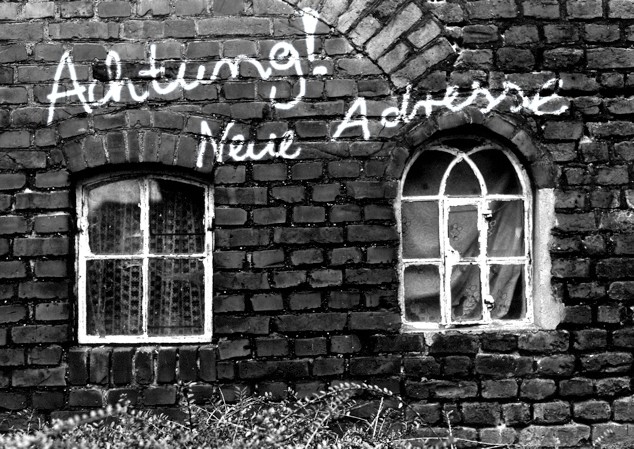 Achtung!
Neue Adresse